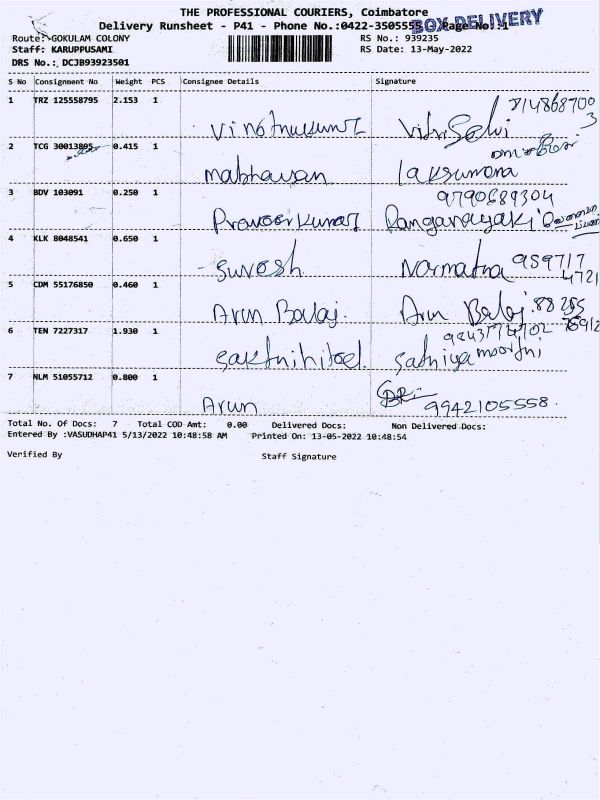 THE PROFESSIONAL COURIERS, Coimbatore
Delivery Runsheet - P41 - Phone No.:0422-3505555 Page No.:1
BOX DELIVERY
Route: GOKULAM COLONY RS No.: 939235
Staff: KARUPPUSAMI RS Date: 13-May-2022
DRS No.: DCJB93923501
S No Consignment No Weight PCS Consignee Details Signature
1 TRZ 125558795 2.153 1
2 TCG 30013895 0.415 1
mabhavan Laksumana
3 BDV 103091 0.250 1
9790689304
Praveen kumar Ranganayaki
4 KLK 8048541 0.650 1
Suresh Narmatha 959717
4721
5 CDM 55176850 0.460 1
Arun Balaj. Arun Balaj
6 TEN 7227317 1.930 1
Sathiya moorthi
7 NLM 51055712 0.800 1
Arun 9942105558
Total No. Of Docs: 7 Total COD Amt: 0.00 Delivered Docs: Non Delivered Docs:
Entered By :VASUDHAP41 5/13/2022 10:48:58 AM Printed On: 13-05-2022 10:48:54
Verified By Staff Signature